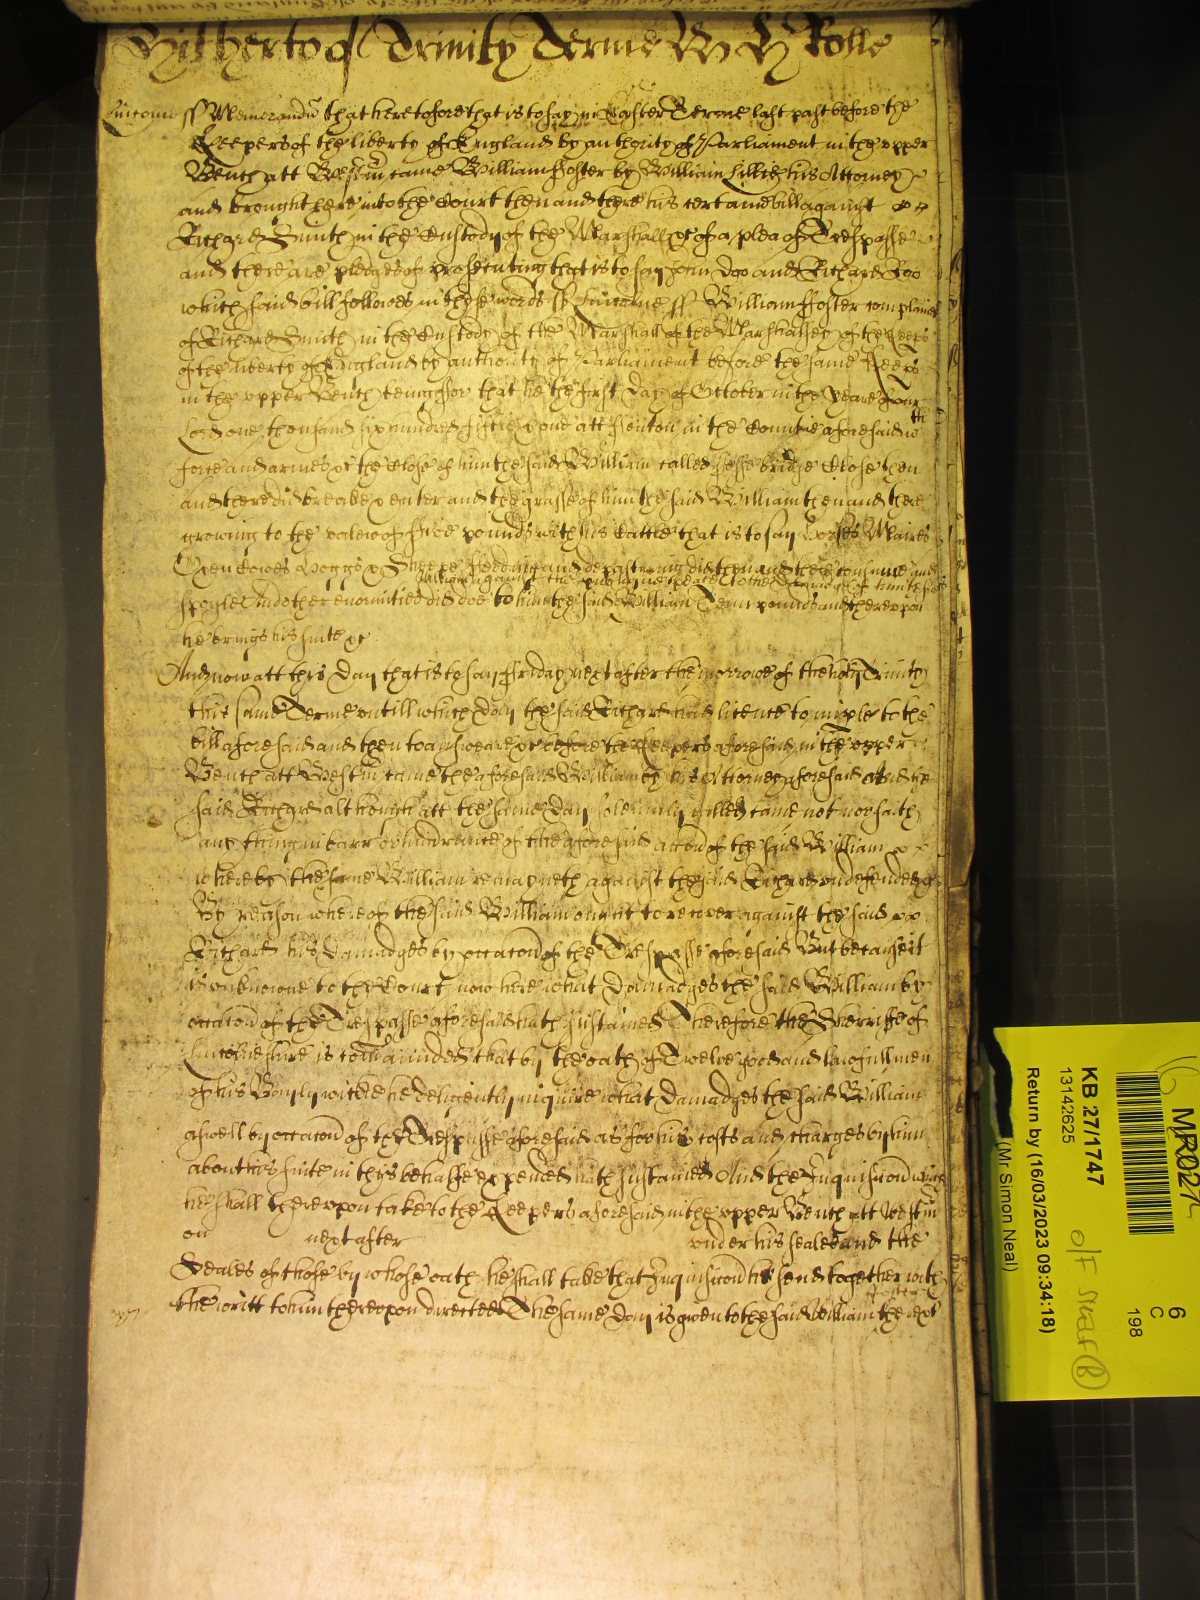 Hitherto of Trinity Terme W H Rolle
Lincolne ss Memorandū that heretofore that is to say in Easter Terme last past before the
Keepers of the liberty of England by authority of Parliament in the upper
Bench att Westm̄ came William ffoster by William Lillie his Attorney
and brought here into the Court then and there his certaine bill against
Richard Smith in the Custody of the Marshall &c of a plea of Trespasse
and there are pledges of prosecuting that is to say John Doo and Richard Roo
which said bill followes in these words ss Lincolne ss William ffoster complaines
of Richard Smith in the Custody of the Marshall of the Marshalsey of the Keeps
of the liberty of England by authority of Parliament before the same Keeps
in the upper Bench being ffor that he the first day of October in the yeare of our
Lord one thousand six hundred fiftie & one att ffenton in the Countie aforesaid wth
force and armes &c the Close of him the said William called bridge Close then
and there did breake & enter and the grasse of him the said William then and there
growing to the valew of ffive pounds with his Cattle that is to say horses Maires
Oxen Cowes hoggs & Sheepe feeding and depasturing did then and there consume and
William against the publique peace & to the damage of him the said
spoyle And other enormities did doe to him the said William Tenn pounds and thereupon
he brings his suite &c
And now att this day that is to say ffriday next after the morrowe of the holy Trinity
this same Terme untill which day the said Richard had licence to imple to the
bill aforesaid and then to answeare &c before the Keepers aforesaid in the upper
Bench att Westm̄ came the aforesaid William by his Attorney aforesaid And the
said Richard although att the same day solemnly called came not nor saith
any thing in barr or hindrance of the aforesaid accōn of the said William
whereby the same William remayneth against the said Richard undefended &c
By reason whereof the said William ought to recover against the said
Richard his damadges by occacōn of the Trespasse aforesaid But because it
is unknowne to the Court now here what damadges the said William by
occacōn of the Trespasse aforesaid hath sustained Therefore the Sherriffe of
Lincolneshire is cōmaunded that by the oath of Twelve good and lawfull men
of his Baylywicke he deligently inquire what damadges the said William
aswell by occacōn of the Trespasse aforesaid as for his costs and charges by him
about his suite in this behalfe expended hath sustained And the Inquisicōn which
he shall thereupon take to the Keepers aforesaid in the upper Bench att Westm̄
on next after under his seale and the
Seales of those by whose oath he shall take that Inquisicōn he send together with
the writt to him thereupon directed The same day is given to the said William there &c
MR022
KB 27/1747
13142625
Return by (16/03/2023 09:34:18)
(Mr Simon Neal)
6
C
198